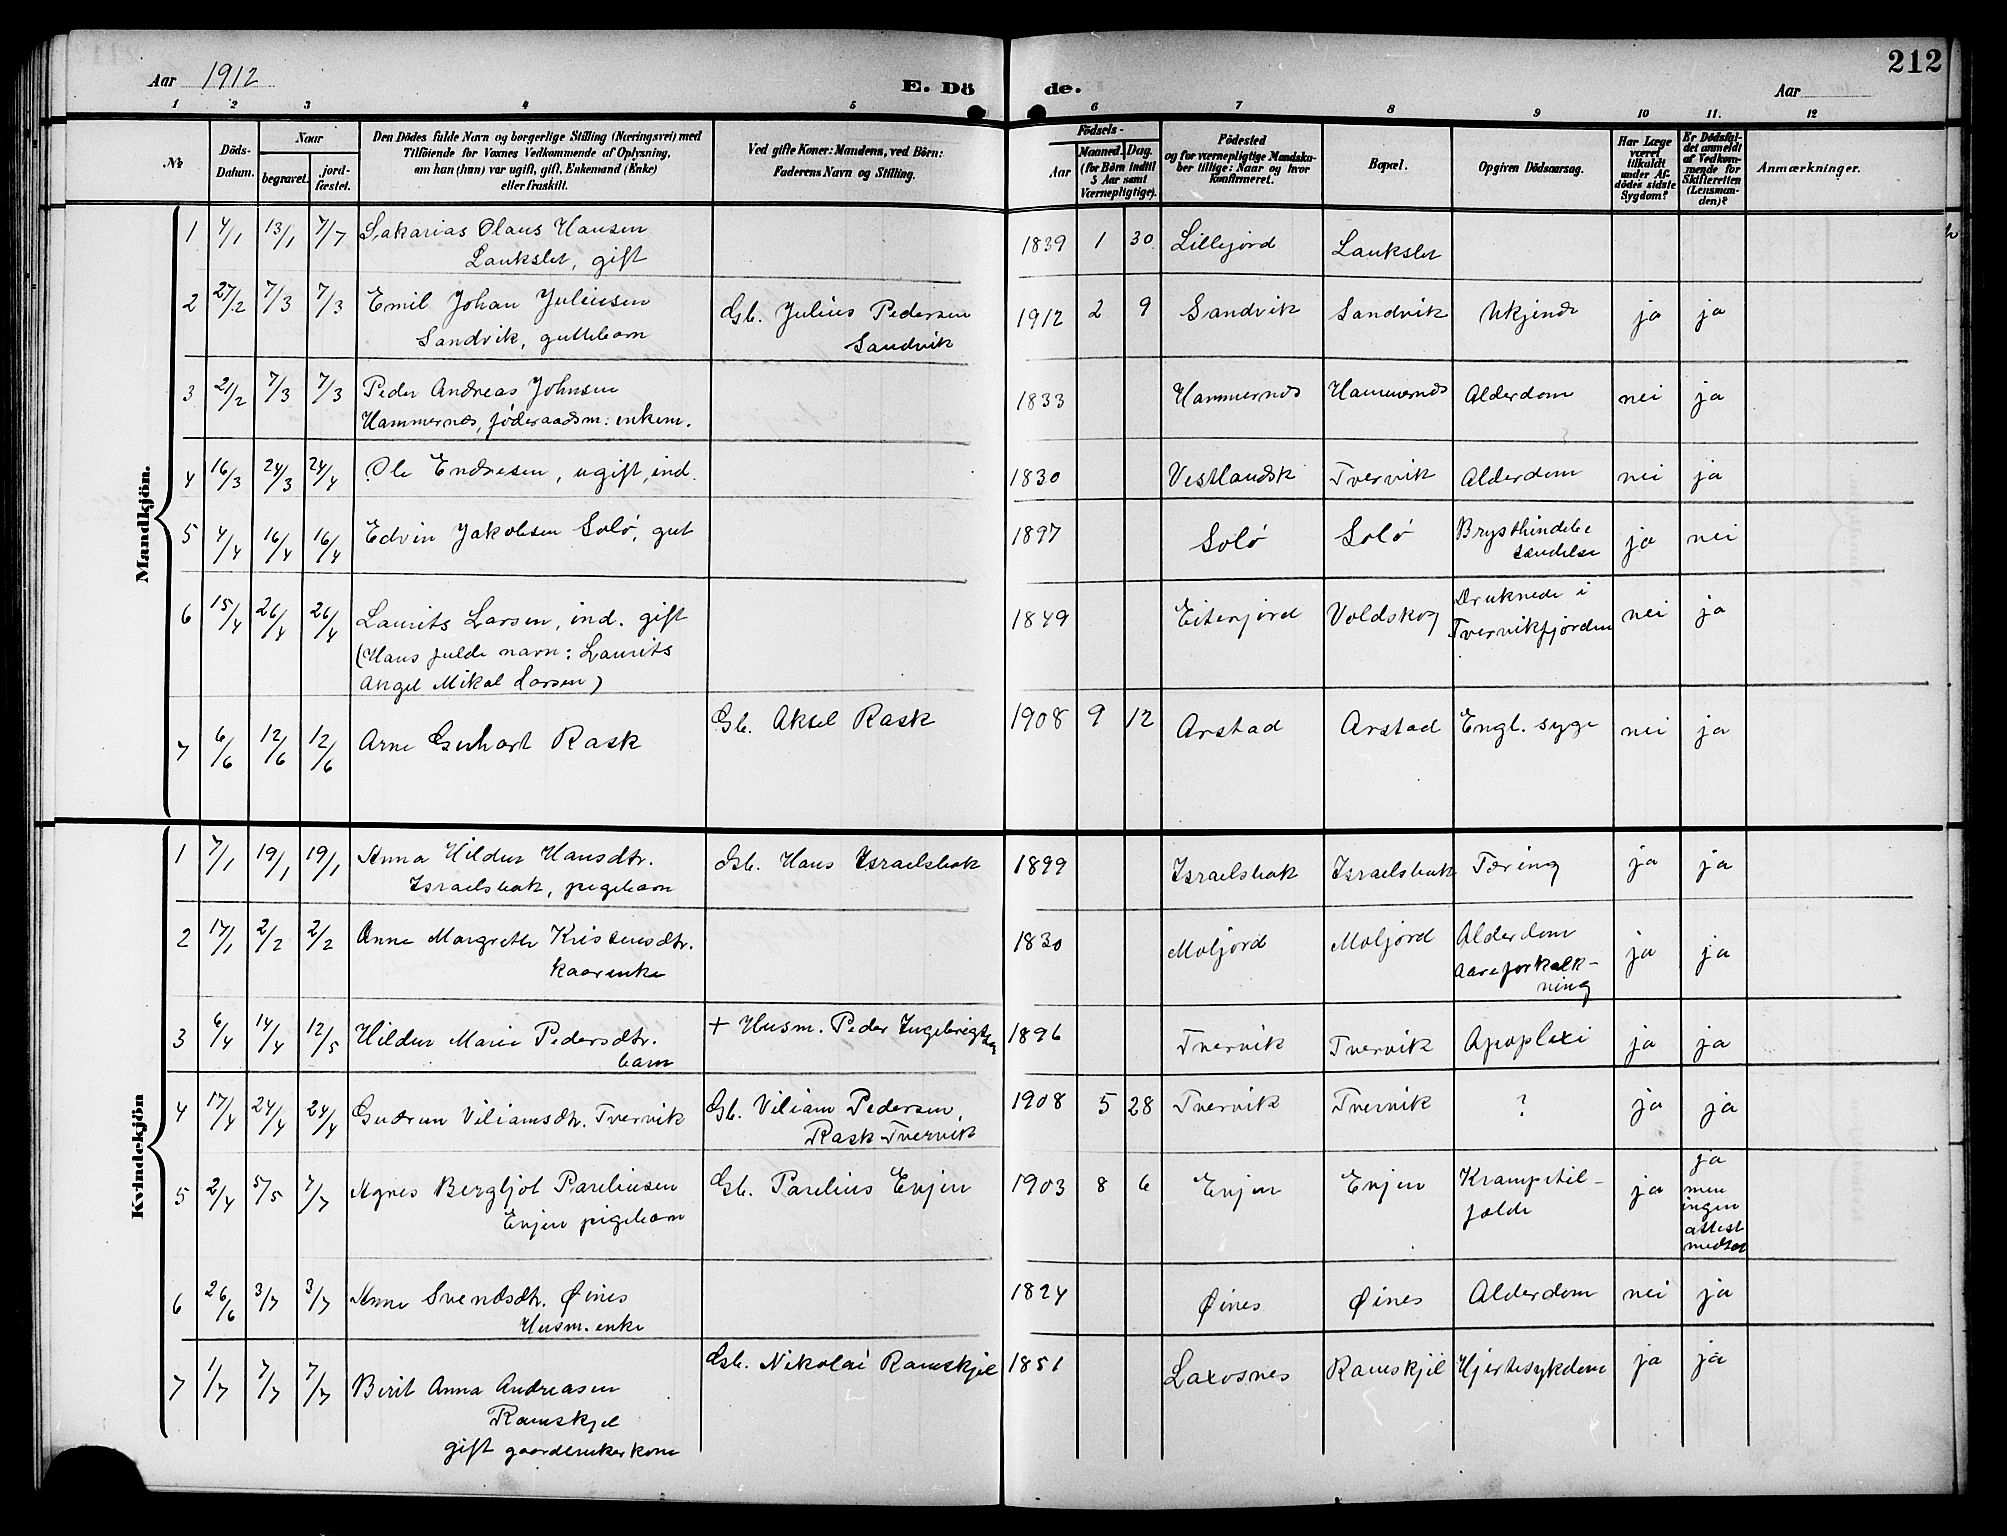 212
Aar 1912
E. Dö
de.
Aar
1 2 3 4 5 6 7 8 9 10 11. 12
№
Döds-Datum.
Naar
begravet.
jord-fæstet.
Den Dödes fulde Navn og borgerlige Stilling (Næringsvei) med
Tilföiende for Voxnes Vedkommende af Oplysning,
om han (hun) var ugift, gift, Enkemand (Enke)
eller fraskilt.
Ved gifte Koner: Mandens, ved Börn:
Faderens Navn og Stilling.
Födsels-
Aar
Maaned. Dag.
(for Börn indtil
5 Aar samt
Værnepligtige).
Födested
og for værnepligtige Mandska-
ber tillige: Naar og hvor
konfirmeret.
Bopæl.
Opgiven Dödsaarsag.
Har Læge
været
tilkaldt
under Af-
dödes sidste
Sygdom?
Er Dödsfal-
det anmeldt
af Vedkom-
mende for
Skifteretten
(Lensman-
den)?
Anmærkninger.
Mandkjön.
1 4/1 13/1 7/7 Sakarias Olaus Hansen 1839 1 30 Lillejord Laukslet
Laukslet, gift
2 27/2 7/3 7/3 Emil Johan Juliussen Gb. Julius Pedersen 1912 2 9 Sandvik Sandvik Ukjendt ja ja
Sandvik, guttebarn Sandvik
3 21/2 7/3 7/3 Peder Andreas Johnsen 1833 Hammernes Hammernes Alderdom nei ja
Hammernes, føderaadsm: enkem.
4 16/3 24/3 24/4 Ole Endresen, ugift, ind. 1830 Vestlandsk Tvervik Alderdom nei ja
5 4/4 16/4 16/4 Edvin Jakobsen Solø, gut 1897 Solø Solø Brysthindebe ja nei
tændelse
6 15/4 26/4 26/4 Laurits Larsen, ind. gift 1849 Eiterjord Voldskog Druknede i nei ja
Tvervikfjorden
(Hans fulde navn: Laurits
Angel Mikal Larsen)
7 6/6 12/6 12/6 Arne Gerhart Rask Gb. Aksel Rask 1908 9 12 Arstad Arstad Engl. syge nei ja
Kvindekjön
1 7/1 19/1 19/1 Anna Hildur Hansdtr. Gb. Hans Israelsbak 1899 Israelsbak Israelsbak Tæring ja ja
Israelsbak, pigebarn
2 17/1 2/2 2/2 Anne Margrethe Kristensdtr. 1830 Moljord Moljord Alderdom ja ja
kaarenke aareforkalk-
ning
3 6/4 14/4 12/5 Hildur Marie Pedersdtr. + Husm. Peder Ingebrigtsen 1896 Tvervik Tvervik Apoplexi ja ja
barn
4 17/4 24/4 24/4 Gudrun Viliamsdtr. Tvervik Gb. Viliam Pedersen, 1908 5 28 Tvervik Tvervik ? ja ja
Rask-Tvervik
5 2/4 5/5 7/7 Agnes Bergljot Pareliusen Gb. Parelius Evjen 1903 8 6 Evjen Evjen Krampetil- ja ja
Evjen pigebarn fælde men
ingen
attest
medtat
6 26/6 3/7 3/7 Anne Svendsdtr. Øines 1824 Øines Øines Alderdom nei ja
Husm.enke
7 1/7 7/7 7/7 Berit Anna Andreasen Gb. Nikolai Ramskjel 1851 Laxosnes Ramskjel Hjertesykdom ja ja
Ramskjel
gift gaardbrukerkone